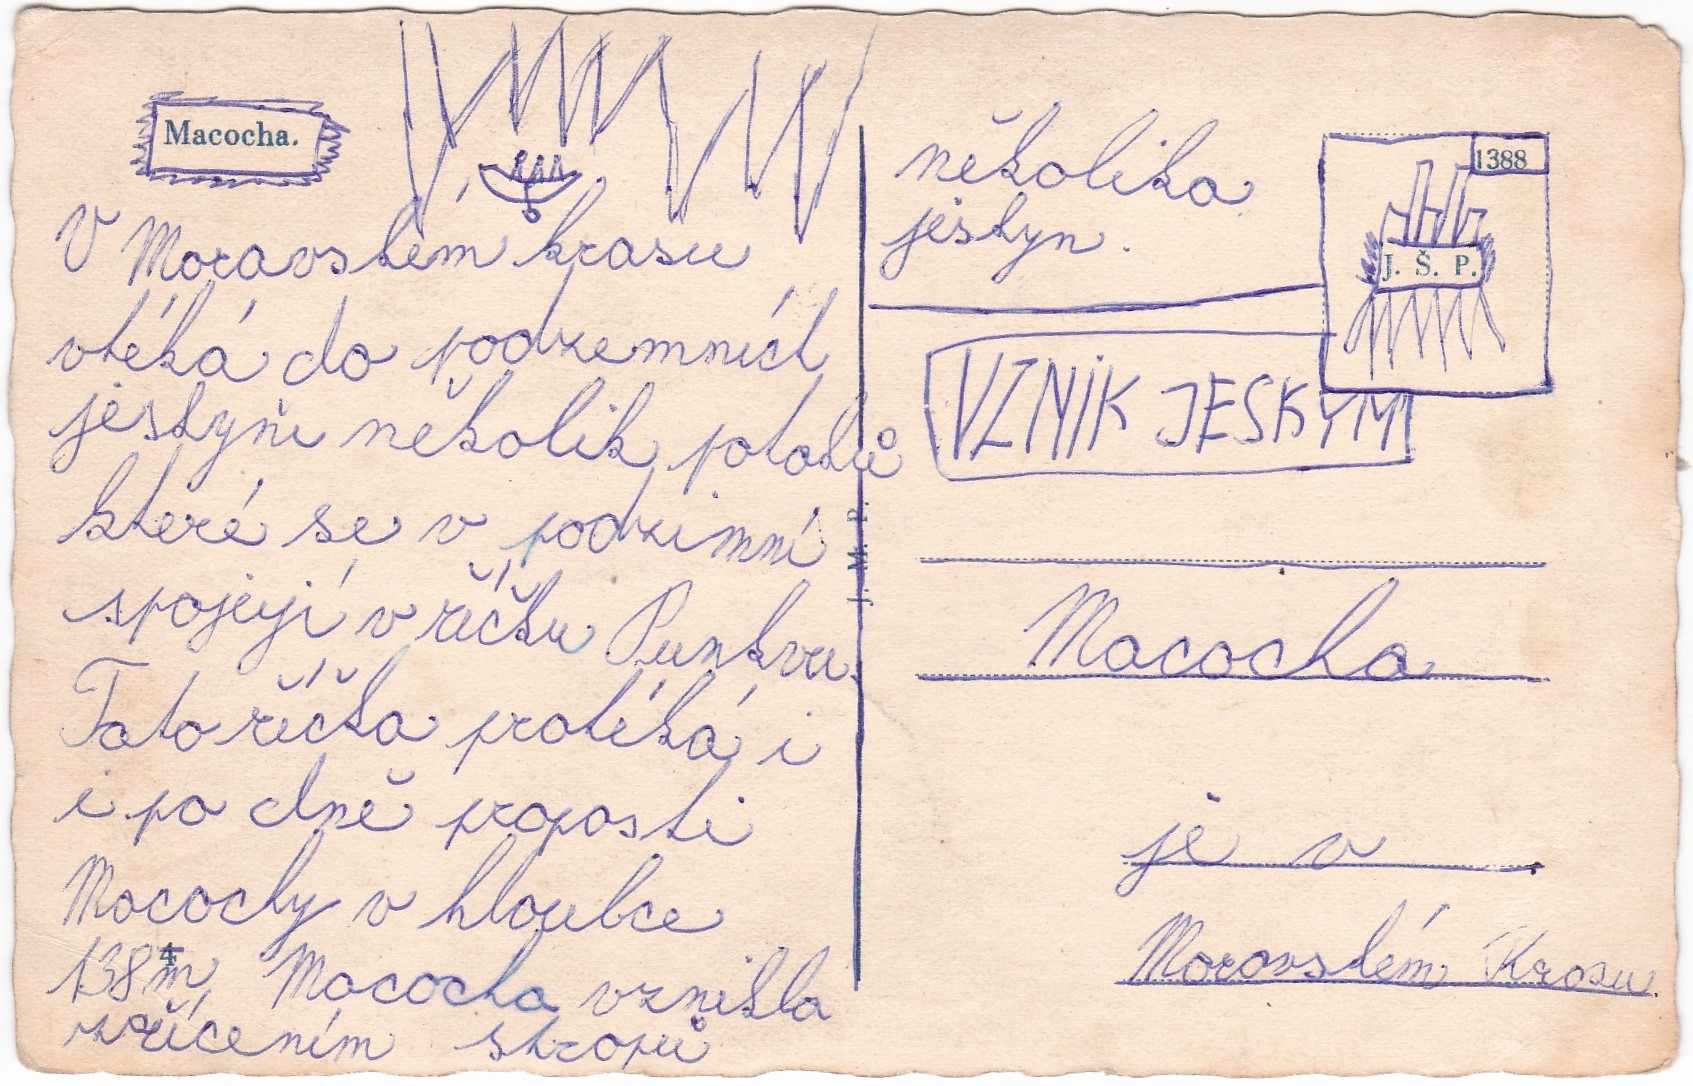 Macocha.
V Moravském krasu
vtéká do podzemních
jeskyní několik potoků
které se v podzimní
spojejí v říčku Punkvu.
Tato říčka protéká i
i po dně propasti
Macochy v hloubce
138 m, Macocha vznikla
zřícením stropů
4
několika
jeskyn.
1388
J. Š. P.
VZNIK JESKYM
J. M. P.
Macocha
je v
Moravském Krasu